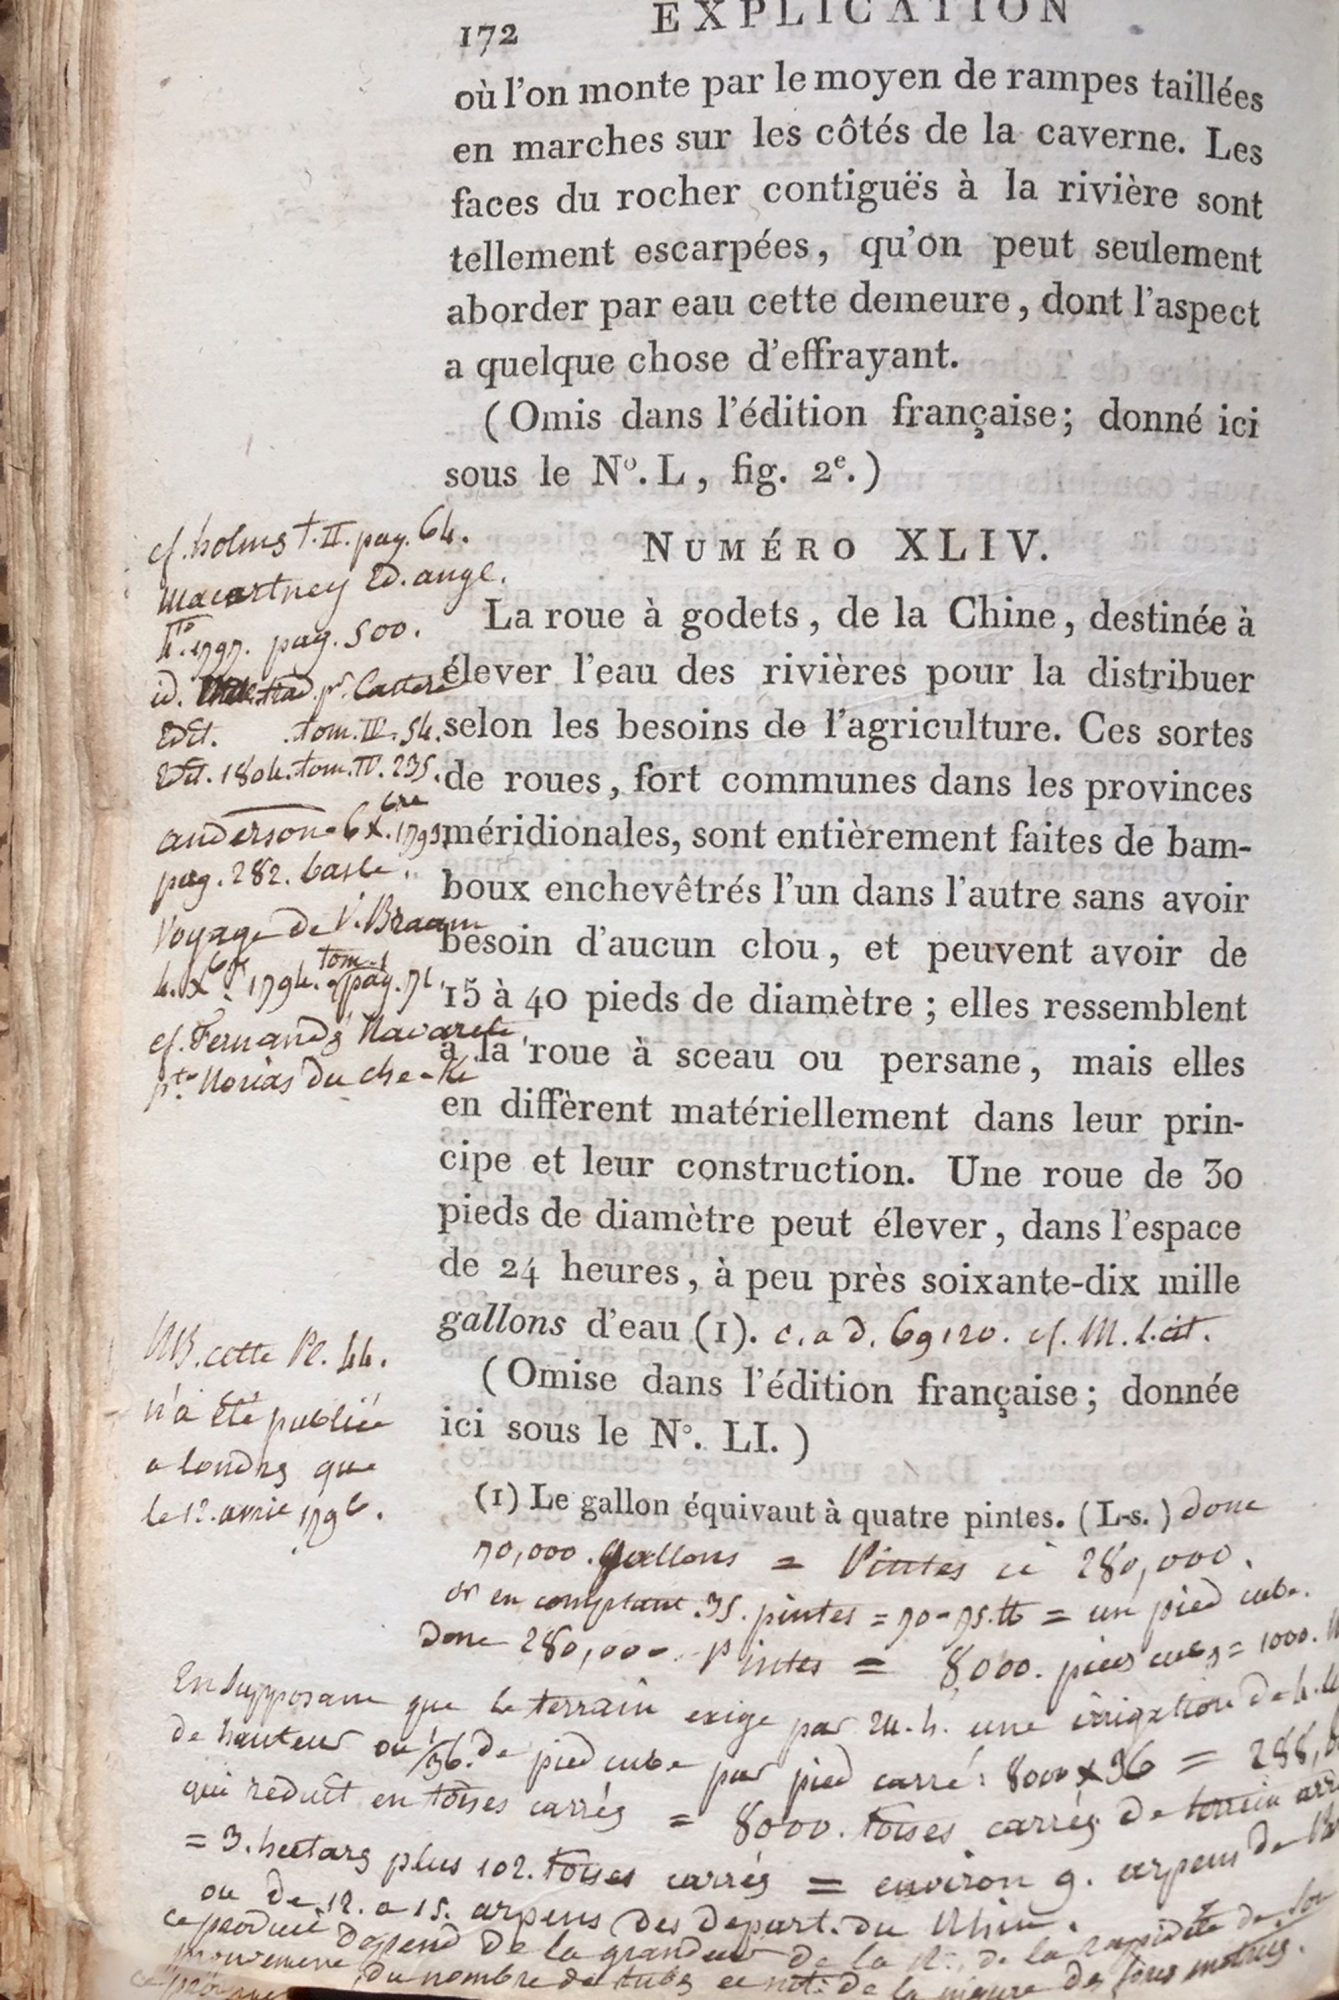 172 EXPLICATION
où l'on monte par le moyen de rampes taillées
en marches sur les côtés de la caverne. Les
faces du rocher contiguës à la rivière sont
tellement escarpées, qu'on peut seulement
aborder par eau cette demeure, dont l'aspect
a quelque chose d'effrayant.
(Omis dans l'édition française; donné ici
sous le Nº. L, fig. 2e.)
NUMÉRO XLIV.
La roue à godets, de la Chine, destinée à
élever l'eau des rivières pour la distribuer
selon les besoins de l'agriculture. Ces sortes
de roues, fort communes dans les provinces
méridionales, sont entièrement faites de bam-
boux enchevêtrés l'un dans l'autre sans avoir
besoin d'aucun clou, et peuvent avoir de
15 à 40 pieds de diamètre; elles ressemblent
à la roue à sceau ou persane, mais elles
en diffèrent matériellement dans leur prin-
cipe et leur construction. Une roue de 30
pieds de diamètre peut élever, dans l'espace
de 24 heures, à peu près soixante-dix mille
gallons d'eau (1). c. a d. 69120. cf. M. l. cit.
(Omise dans l'édition française; donnée
ici sous le Nº. LI.)
(1) Le gallon équivaut à quatre pintes. (L-s.) donc
70,000. gallons = Pintes 280,000.
or en comptant 35. pintes = 70-75. ℔ = un pied cube.
Donc 280,000. Pintes = 8,000. pieds cubes = 1000.
En supposant que le terrain exige par 24. h. une irrigation de 4.
de hauteur ou 1/36. de pied cube par pied carré: 8000 x 36 = 288,
qui réduit en toises carrés = 8000. toises carrés de terrain
= 3. hectars plus 102. toises carrés = environ 9. arpens de
ou de 12. a 15. arpens des depart. du Rhin.
ce produit depend de la grandeur de la R. de la rapidité de son
mouvement, du nombre de tubes et de la des forces motrices.
cf. holms t. II. pag. 64.
Macartney Ed. angl.
4to. 1797. pag. 500.
id. trad. pr. Castera
Edit. tom. III. 54.
Edit. 1804. tom. IV. 235.
anderson 6 Xbre. 1793.
pag. 282. basle.
Voyage de V. Braam
4. Xbre. 1794. tom. 1 pag. 71.
cf. Fernandz Navarete
Norias du che-ki
NB. cette Pl. 44.
n'a été publiée
a londres que
le 12. avril 1796.